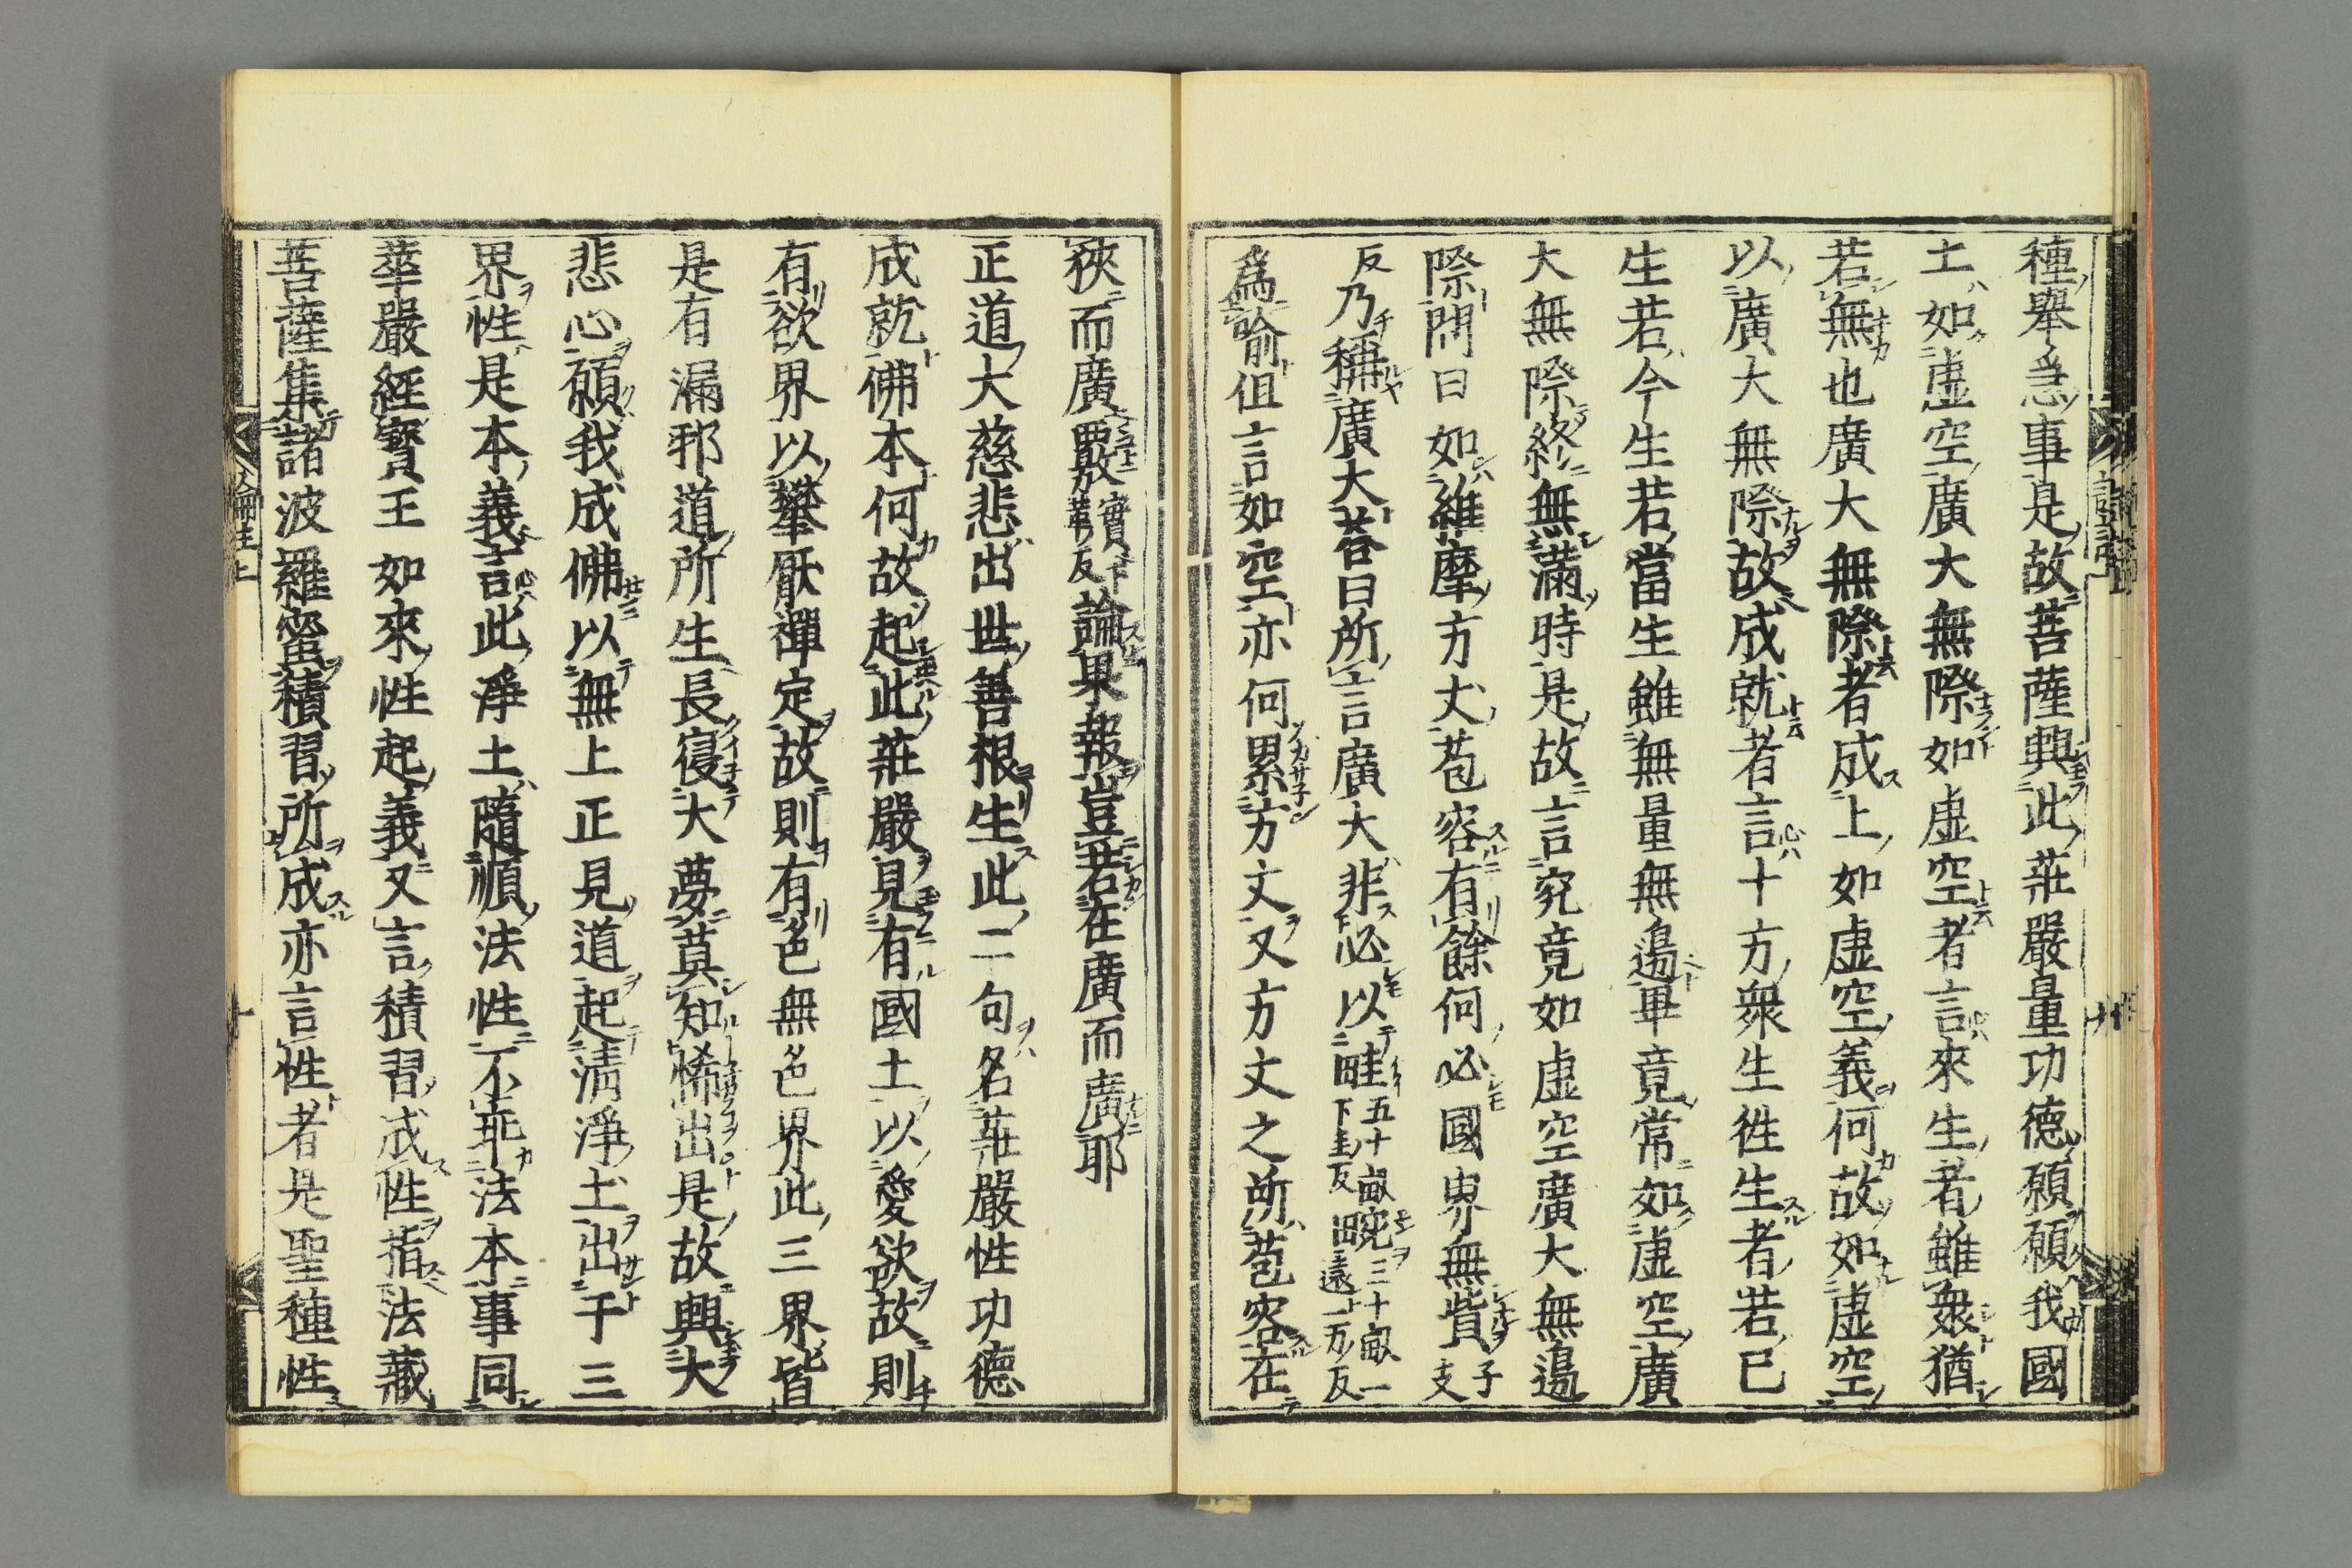 種舉急事是故菩薩興此莊嚴量功德願願我國
土如虛空廣大無際如虛空者言來生者雖衆猶
若無也廣大無際者成上如虛空義何故如虛空
以廣大無際故成就者言十方衆生徃生者若已
生若今生若當生雖無量無邊畢竟常如虛空廣
大無際終無滿時是故言究竟如虛空廣大無邊
際問曰如維摩方丈苞容有餘何必國界無貲子支
反乃稱廣大荅曰所言廣大非必以畦五十畝下圭反畹三十畝一遠一万反
爲喻但言如空亦何累方丈又方丈之所苞容在
狹而廣覈實下革反論果報豈若在廣而廣耶
正道大慈悲出世善根生此二句名莊嚴性功德
成就佛本何故起此莊嚴見有國土以愛欲故則
有欲界以攀厭禪定故則有色無色界此三界皆
是有漏邪道所生長寢大夢莫知悕出是故興大
悲心願我成佛以無上正見道起淸淨土出于三
界性是本義言此淨土隨順法性不乖法本事同
華嚴經寶王如來性起義又言積習成性指法藏
菩薩集諸波羅蜜積習所成亦言性者是聖種性
論註上